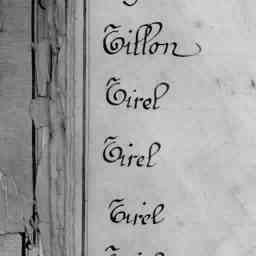 Tillon
Tirel
Tirel
Tirel